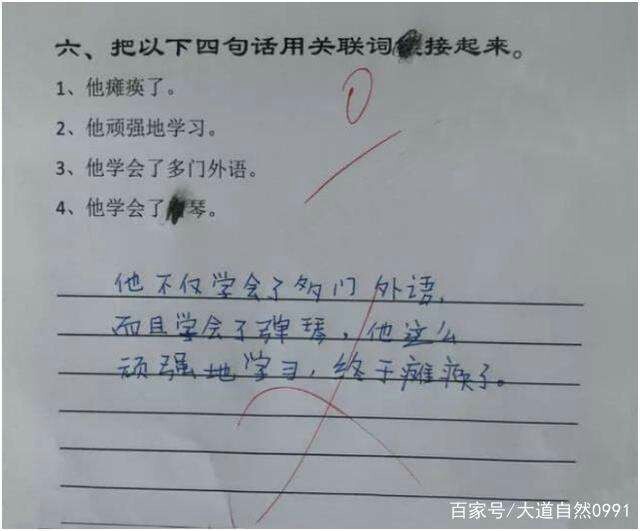 六、把以下四句话用关联词接起来。
1、他瘫痪了。
2、他顽强地学习。
3、他学会了多门外语。
4、他学会了琴。
0
他不仅学会了多门外语，
而且学会了弹琴，他这么
顽强地学习，终于瘫痪了。
百家号/大道自然0991